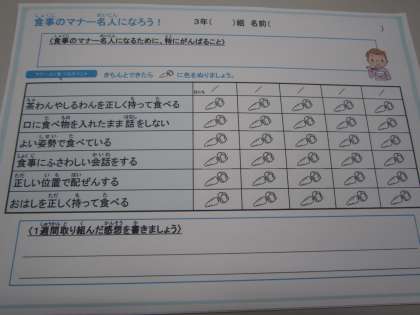 食事のマナー名人になろう！　３年（　　）組　名前（　　　　　）
〈食事のマナー名人になるために、特にがんばること〉
きちんとできたら　に色をぬりましょう。
茶わんやしるわんを正しく持って食べる
口に食べ物を入れたまま話をしない
よい姿勢で食べている
食事にふさわしい会話をする
正しい位置で配ぜんする
おはしを正しく持って食べる
〈１週間取り組んだ感想を書きましょう〉